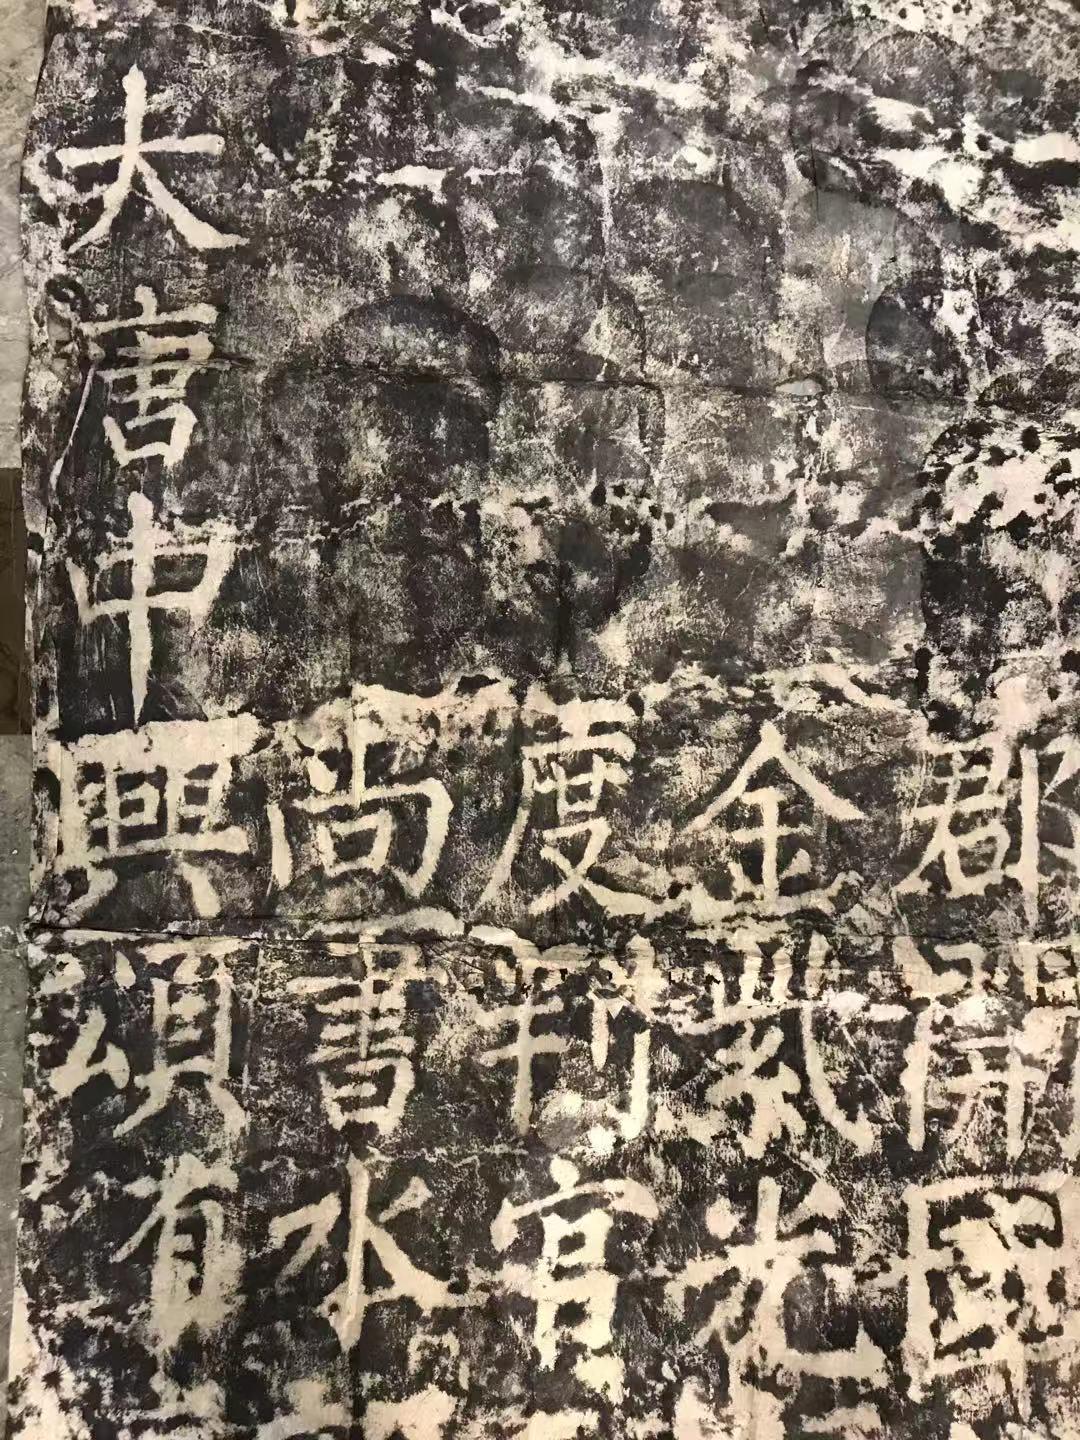 大唐中興頌有
尚書水
度判官
金紫光
郡開國